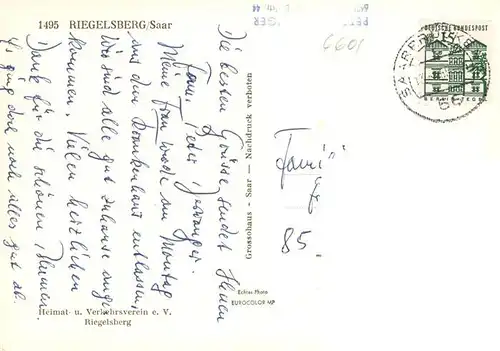 1495 RIEGELSBERG/Saar
6601
DEUTSCHE BUNDESPOST
15
BERLIN-TEGEL
SAARBRÜCKEN
Die besten Grüsse sendet Ihnen
Fam. Peter
Meine Frau wurde am Montag
aus dem Krankenhaus entlassen,
Wir sind alle gut zuhause ange
kommen. Vielen herzlichen
Dank für die schönen Blumen.
Es ging doch noch alles gut ab.
Grossohaus - Saar — Nachdruck verboten
Echtes Photo
EUROCOLOR MP
85.-
Heimat- u. Verkehrsverein e. V.
Riegelsberg